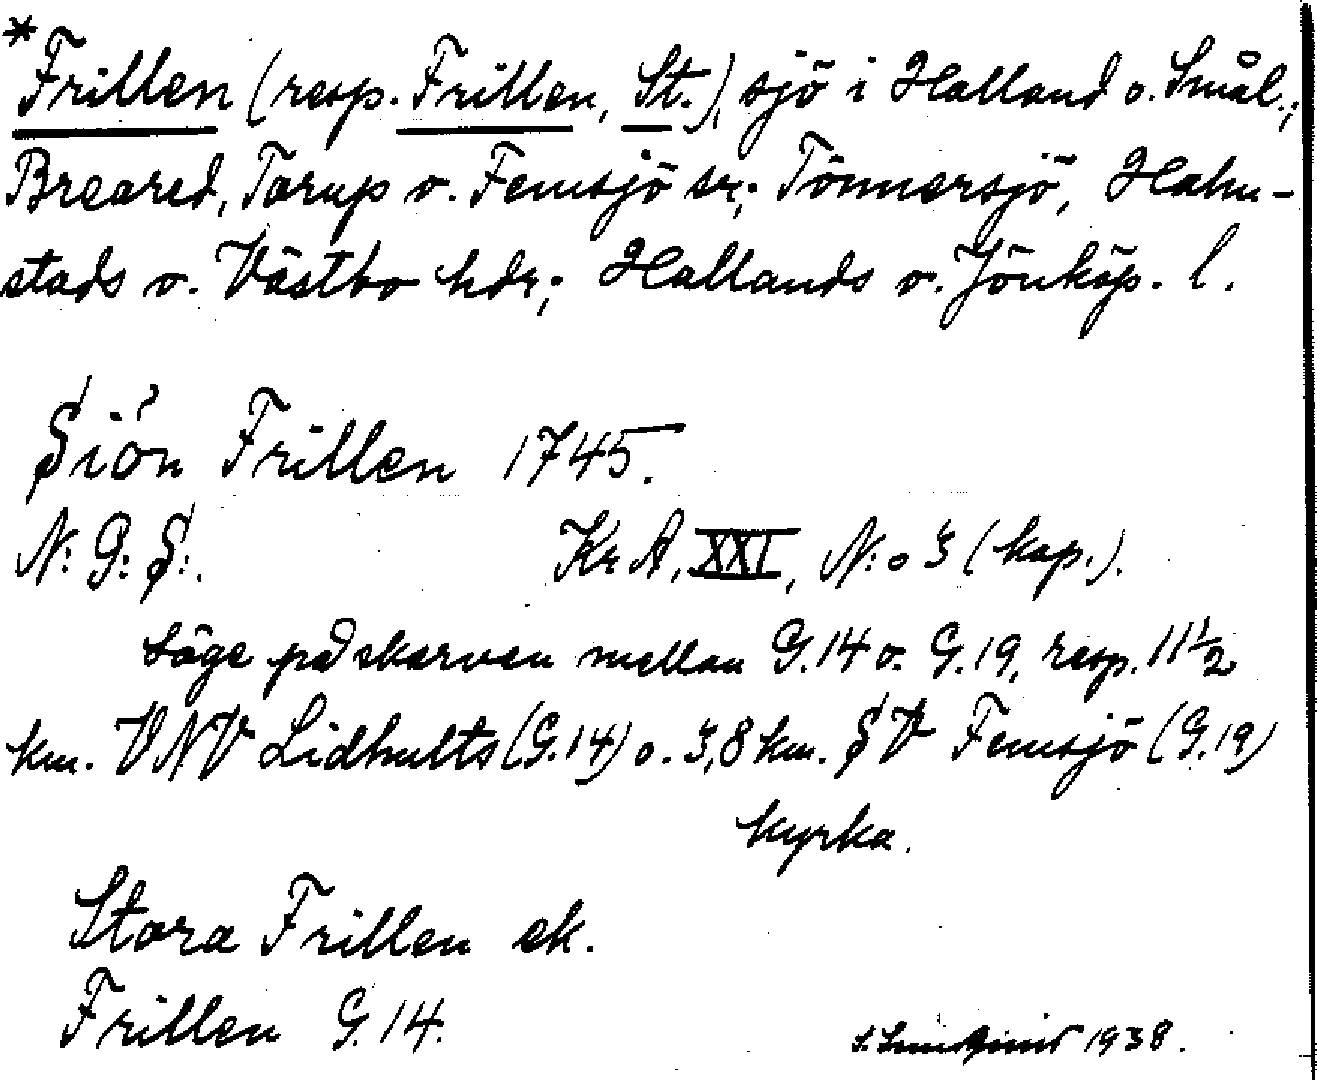 *Frillen (resp. Frillen, St.), sjö i Halland o. Smål.;
Breared, Torup o. Femsjö sr; Tönnersjö, Halm-
stads o. Västbo hdr; Hallands o. Jönköp. l.
Siön Frillen 1745.
N: G: S:. Kr A, XXI, N:o 3 (kop.).
Läge på skarven mellan G.14 o. G.19, resp. 11 1/2
km. VNV Lidhults (G.14) o. 3,8 km. SV Femsjö (G.19)
kyrka.
Stora Frillen ek.
Frillen G.14.
1938.